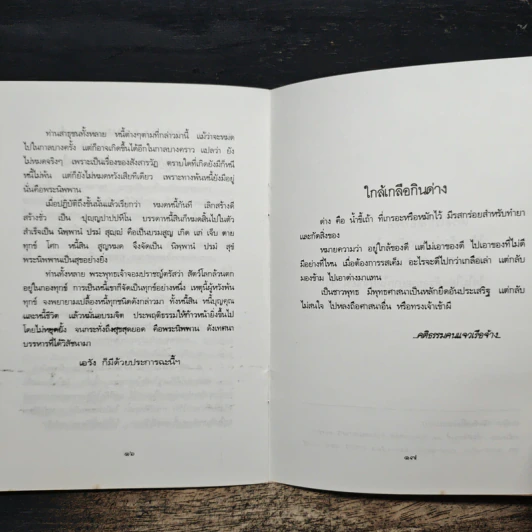 ท่านสาธุชนทั้งหลาย หนี้ต่างๆตามที่กล่าวมานี้ แม้ว่าจะหมด
ไปในกาลบางครั้ง แต่ก็อาจเกิดขึ้นได้อีกในกาลบางคราว แปลว่า ยัง
ไม่หมดจริงๆ เพราะเป็นเรื่องของสังสารวัฏ ตราบใดที่เกิดยังมีก็หนี
หนี้ไม่พ้น แต่ก็ยังไม่หมดหวังเสียทีเดียว เพราะทางพ้นหนี้ยังมีอยู่
นั่นคือพระนิพพาน
เมื่อปฏิบัติถึงชั้นนั้นแล้วเรียกว่า หมดหนี้กันที เลิกสร้างดี
สร้างชั่ว เป็น ปุญฺญปาปปหีโน บรรดาหนี้สินก็หมดสิ้นไปในตัว
สำเร็จเป็น นิพฺพานํ ปรมํ สุญฺญํ คือเป็นบรมสูญ เกิด แก่ เจ็บ ตาย
ทุกข์ โศก หนี้สิน สูญหมด จึงจัดเป็น นิพฺพานํ ปรมํ สุขํ
พระนิพพานเป็นสุขอย่างยิ่ง
ท่านทั้งหลาย พระพุทธเจ้าจอมปราชญ์ตรัสว่า สัตว์โลกล้วนตก
อยู่ในกองทุกข์ การเป็นหนี้เขาก็จัดเป็นทุกข์อย่างหนึ่ง เหตุนี้ผู้หวังพ้น
ทุกข์ จงพยายามเปลื้องหนี้ทุกชนิดดังกล่าวมา ทั้งหนี้สิน หนี้บุญคุณ
และหนี้ชีวิต แล้วหมั่นอบรมจิต ประพฤติธรรมให้ก้าวหน้ายิ่งขึ้นไป
โดยไม่หยุดยั้ง จนกระทั่งถึงสุขสุดยอด คือพระนิพพาน ดังเทศนา
บรรหารที่ได้วิสัชนามา
เอวัง ก็มีด้วยประการฉะนี้ฯ
๑๖
ใกล้เกลือกินด่าง
ด่าง คือ น้ำขี้เถ้า ที่เกรอะหรือหมักไว้ มีรสกร่อยสำหรับทำยา
และกัดสิ่งของ
หมายความว่า อยู่ใกล้ของดี แต่ไม่เอาของดี ไปเอาของที่ไม่ดี
มีอย่างที่ไหน เมื่อต้องการรสเค็ม อะไรจะดีไปกว่าเกลือเล่า แต่กลับ
มองข้าม ไปเอาด่างมาแทน
เป็นชาวพุทธ มีพุทธศาสนาเป็นหลักยึดอันประเสริฐ แต่กลับ
ไม่สนใจ ไปหลงถือศาสนาอื่น หรือทรงเจ้าเข้าผี
...คติธรรมคนแจวเรือจ้าง...
๑๗